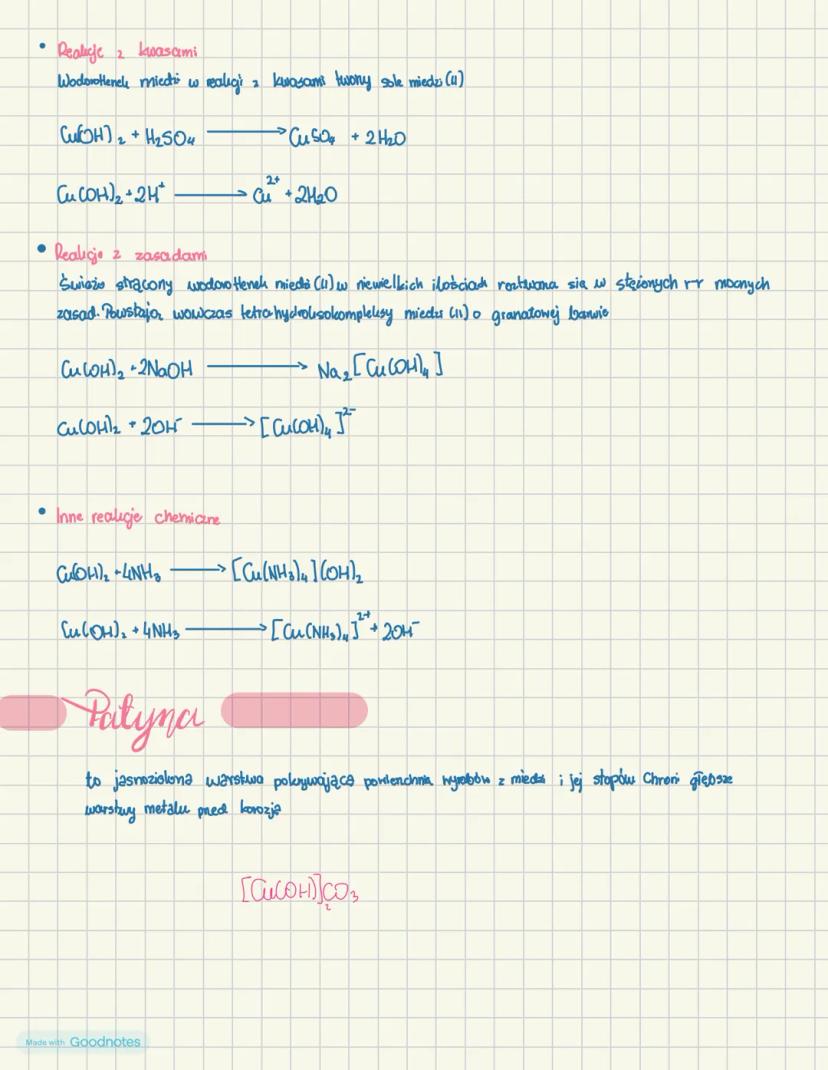 • Reakcje z kwasami
Wodorotlenek miedzi w reakcji z kwasami tworzy sole miedzi (II)
Cu(OH)₂ + H₂SO₄ ⟶ CuSO₄ + 2H₂O
Cu(OH)₂ + 2H⁺ ⟶ Cu²⁺ + 2H₂O
• Reakcje z zasadami
Świeżo strącony wodorotlenek miedzi (II) w niewielkich ilościach roztwarza się w stężonych rr mocnych
zasad. Powstają wówczas tetrahydroksokompleksy miedzi (II) o granatowej barwie
Cu(OH)₂ + 2NaOH ⟶ Na₂[Cu(OH)₄]
Cu(OH)₂ + 2OH⁻ ⟶ [Cu(OH)₄]²⁻
• Inne reakcje chemiczne
Cu(OH)₂ + 4NH₃ ⟶ [Cu(NH₃)₄](OH)₂
Cu(OH)₂ + 4NH₃ ⟶ [Cu(NH₃)₄]²⁺ + 2OH⁻
Patyna
to jasnozielona warstwa pokrywająca powierzchnia wyrobów z miedzi i jej stopów Chroni głębsze
warstwy metalu przed korozją
[Cu(OH)]₂CO₃
Made with Goodnotes